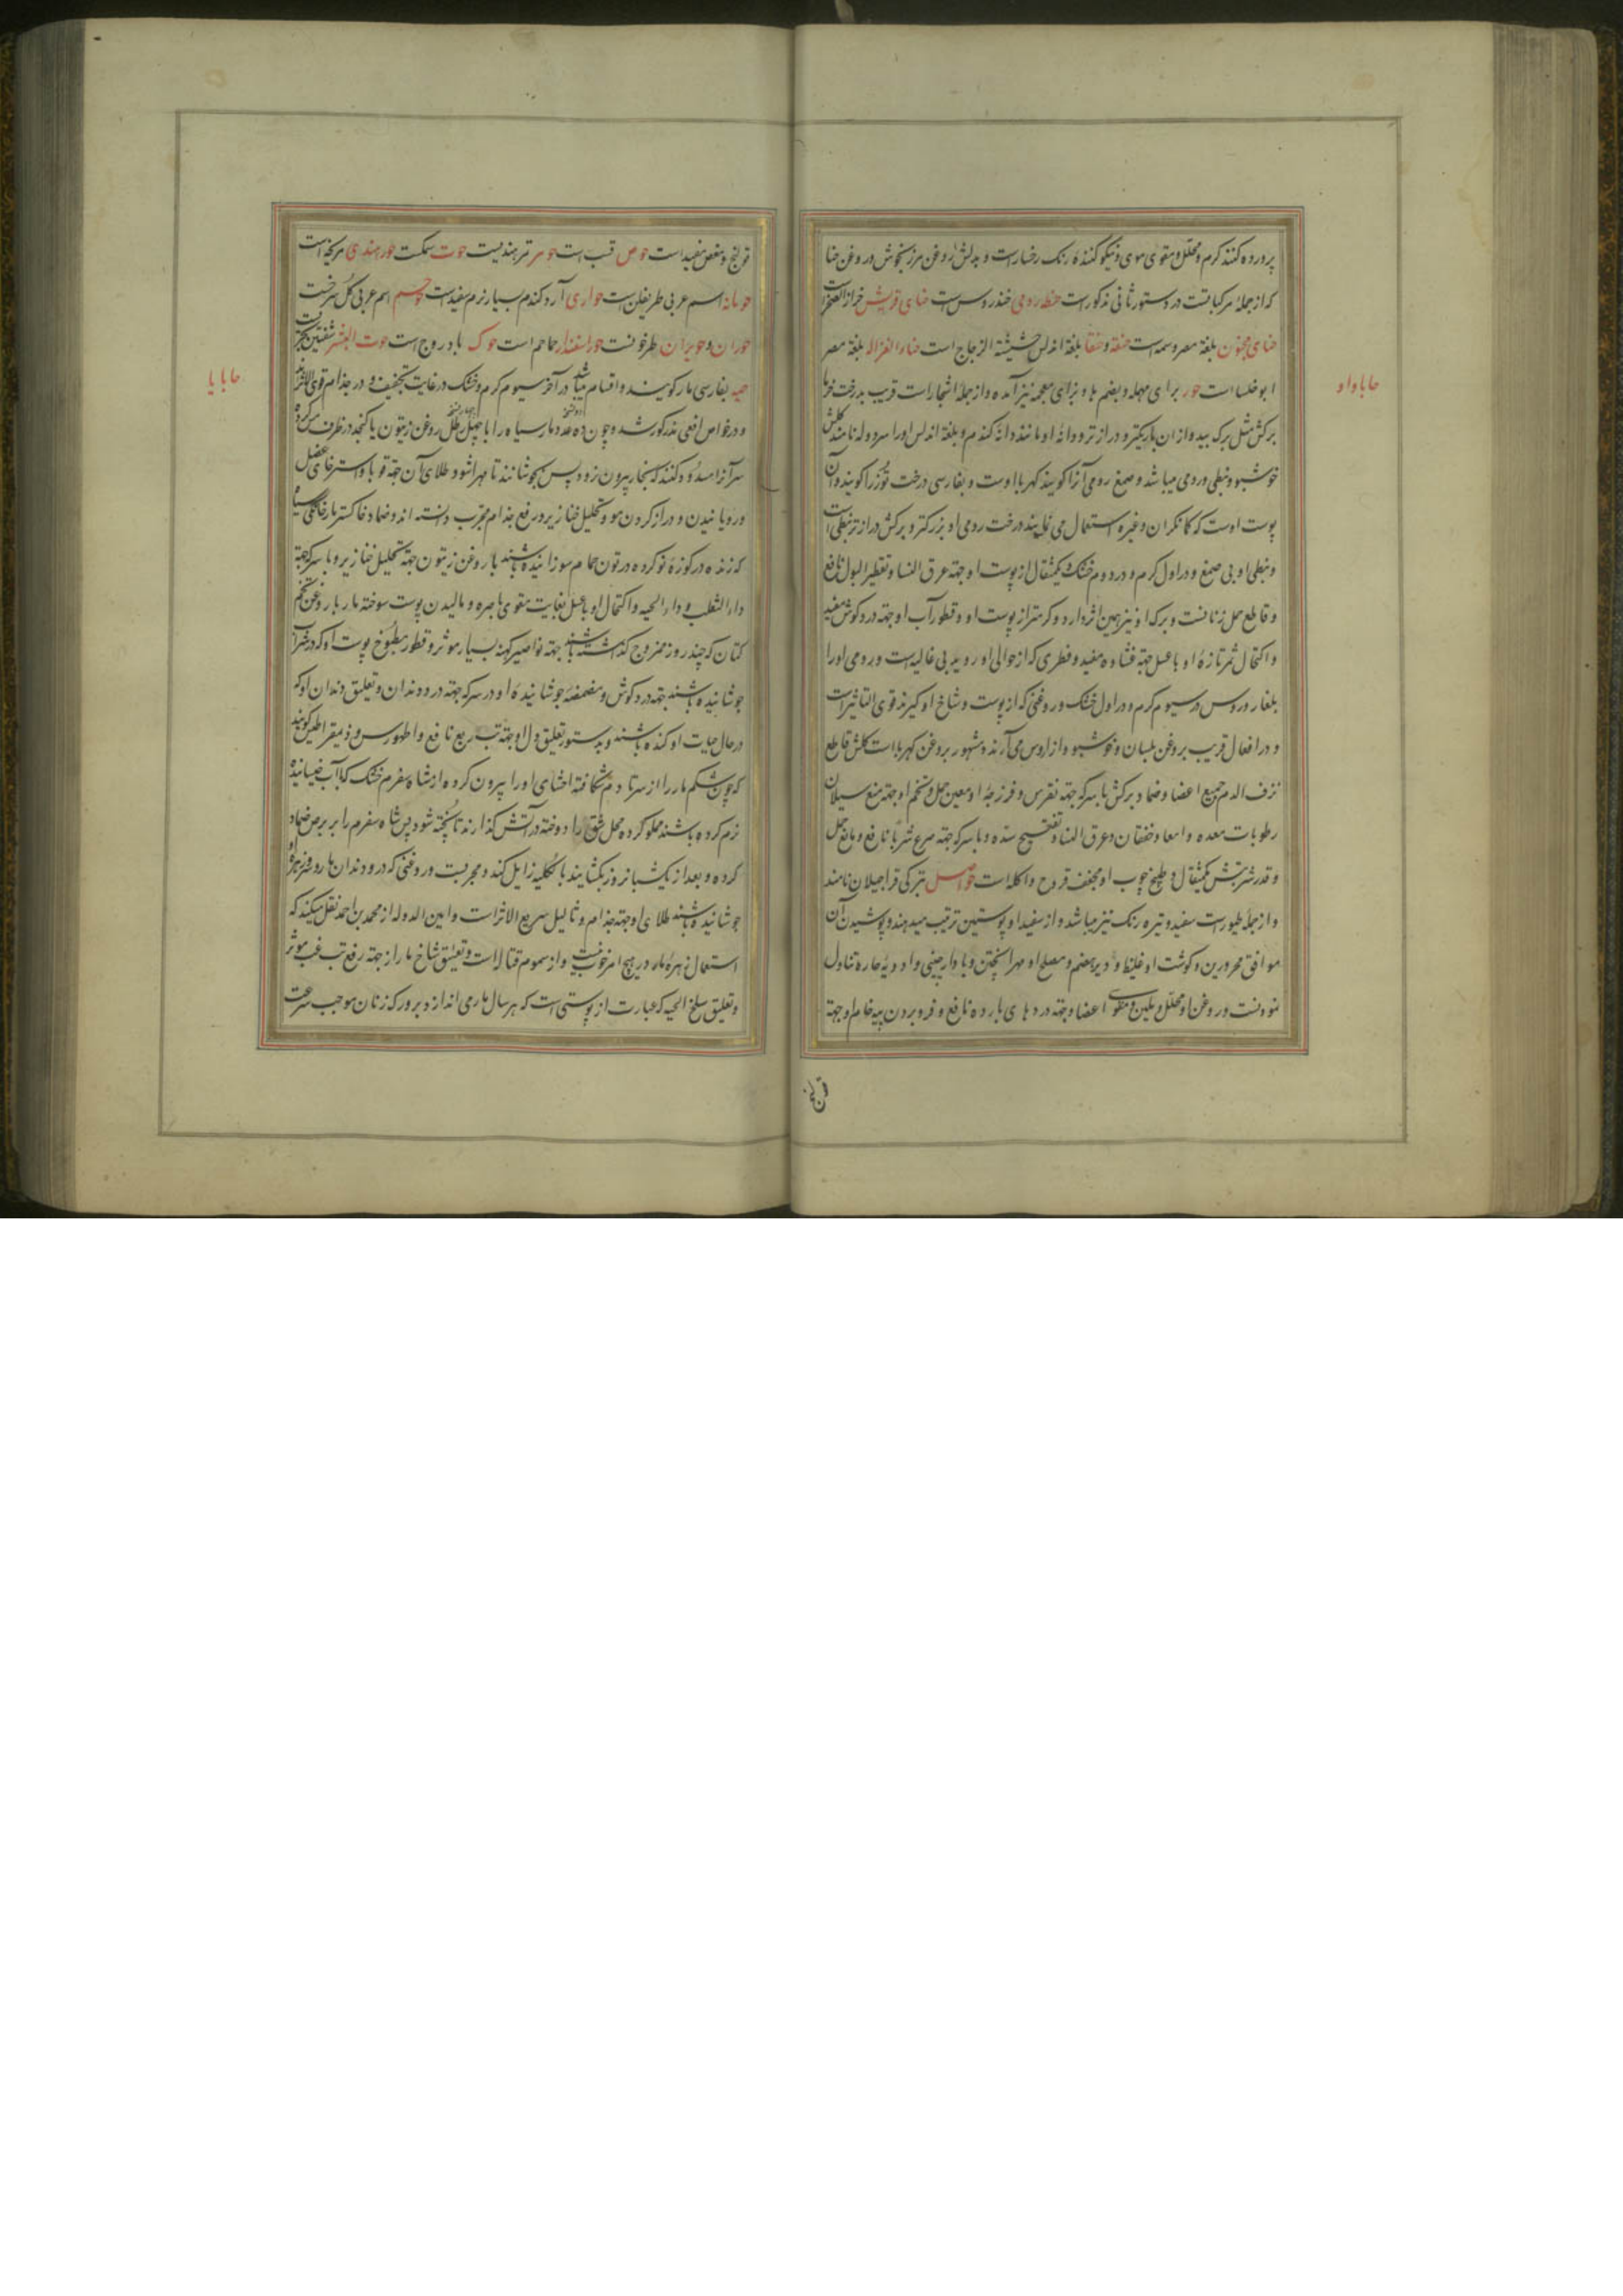 پرورده کنند کرم و محلل و مقوی موی و نیکو کنندهٔ رنک رخسارست و بدلش روغن مرزنجوش و روغن حنا
که از جملهٔ مرکباتست در دستور ثانی مذکورست حنطهٔ رومی خندروس است حنای قریش حزاز الصخر است
حنای مجنون بلغة مصر وسمه است حنقه و حنقا بلغة اندلس حشیشة الزجاج است حناء الغزاله بلغة مصر
ابوخلسا است حور برای مهمله و بضم ها و بزای معجمه نیز آمده و از جملهٔ اشجار است قریب بدرخت خرما
برکش مثل برک بید و از ان باریکتر و دراز تر و دانهٔ او مانند دانهٔ کندم و بلغة اندلس اورا سردوله نامند کلش
خوشبو و نبطی و رومی میباشد و صمغ رومی آنرا کویند کهرباء اوست و بفارسی درخت توز را کویند و آن
پوست اوست که کمانکران و غیره استعمال می نمایند درخت رومی او بزرکتر و برکش دراز تر نبطی است
و نبطی او بی صمغ و در اول کرم و در دوم خشک و یکمثقال از پوست او جهة عرق النسا و تقطیر البول نافع
و قاطع حمل زنانست و برک او نیز همین اثر دارد و کرمتر از پوست او و قطور آب او جهة درد کوش مفید
و اکتحال ثمر تازهٔ او با عسل جهة غشاوه مفید و فطری که از حوالی او روید بی غائله است و رومی اورا
بلغار و روس در سیوم کرم و در اول خشک و روغنی که از پوست و شاخ او کیرند قوی التاثیر است
و در افعال قریب بروغن بلسان و خوشبو و از اروس می آرند و مشهور بروغن کهرباست کلش قاطع
نزف الدم جمیع اعضا و ضماد برکش با سرکه جهة نقرس و فرزجهٔ او معین حمل و تخم او جهة منع سیلان
رطوبات معده و امعا و خفقان و عرق النسا و تفتیح سده و با سرکه جهة صرع شربا نافع و مانع حمل
و قدر شربتش یکمثقال و طبخ چوب او مجفف قروح و اکله است حواصل بترکی قراجیلان نامند
و از جملهٔ طیورست سفید و تیره رنک نیز میباشد و از سفید او پوستین ترتیب میدهند و پوشیدن آن
موافق محرورین و کوشت او غلیظ و دیر هضم و مصلح او مهرا پختن و با دارچینی و ادویهٔ حاره تناول
نمودنست و روغن او محلل و ملین و مقوی اعضا و جهة دردهای بارده نافع و فرو بردن پیه خام او جهة
حاباواو
قولنج و مغص مفید است حوص قبست حومر تمر هندیست حوت سمکست حور هندی مریخه است
حومانه اسم عربی طریفلن است حواری آرد کندم بسیار نرم سفیدست حوجم اسم عربی کل سرخست
حوران و حویران طرخونست حور اسفندار حماحم است حوک بادروج است حوت البشر شفنین بحریست
حیه بفارسی مار کویند و اقسام میباشد در آخر سیوم کرم و خشک در غایت تجفیف و در جذام قوی الاثرند
و در خواص افعی مذکور شد و چون ده عدد مار سیاه را با چهل رطل روغن زیتون یا کنجد در ظرف مس کرده
سر آنرا مسدود کنند که بخار بیرون نرود پس بجوشانند تا مهرا شود طلای آن جهة قوبا و استرخای عضل
و رویانیدن و دراز کردن مو و تحلیل خنازیر و رفع جذام مجرب دانسته اند و ضماد خاکستر مار خانگی سیاه
که زنده در کوزهٔ نو کرده در تون حمام سوزانیده باشند با روغن زیتون جهة تحلیل خنازیر و با سرکه جهة
داء الثعلب و داء الحیه و اکتحال او با عسل بغایت مقوی باصره و مالیدن پوست سوختهٔ مار با روغن تخم
کتان که چند روز ممزوج کذاشته باشند جهة نواصیر کهنه بسیار موثر و قطور مطبوخ پوست او که در شراب
جوشانیده باشند جهة درد کوش و مضمضهٔ جوشانیدهٔ او در سرکه جهة درد دندان و تعلیق دندان او که
در حال حیات او کنده باشند و بدستور تعلیق دل او جهة تب ربع نافع و اطهورسس و ذیمقراطیس کویند
که چون شکم مار را از سر تا دم شکافته احشای اورا بیرون کرده از شاه سفرم خشک که با آب خیسانیده
نرم کرده باشند مملو کرده محل شق را دوخته در آتش کذارند تا پخته شود پس شاه سفرم را بر برص ضماد
کرده و بعد از یکشبانروز بکشایند بالکلیه زایل کند و مجربست و روغنی که در و دندان مار و زهره او
جوشانیده باشند طلای او جهة جذام و ثالیل سریع الاثر است و امین الدوله از محمد بن احمد نقل میکند که
استعمال زهرهٔ مار در هیچ امر خوب نیست و از سموم قتاله است و تعلیق شاخ مار از جهة رفع تب غب موثر
و تعلیق سلخ الحیه که عبارت از پوستی است که هر سال مار می اندازد بر ورک زنان موجب سرعت
حابایا
قولنج